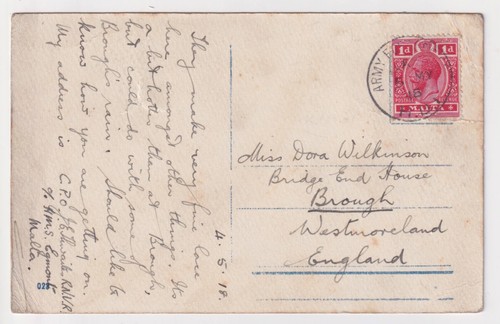 They make very fine lace
here, amongst other things. Its
a bit hotter than at Brough,
but could do with some of
Brough's rain. Should like to
know how you are getting on.
My address is C.P.O.
R.N.V.R.
c/o H.M.S. Egmont
Malta.
4.5.18.
023
1d 1d
MALTA
ARMY
Miss Dora Wilkinson
Bridge End House
Brough
Westmoreland
England